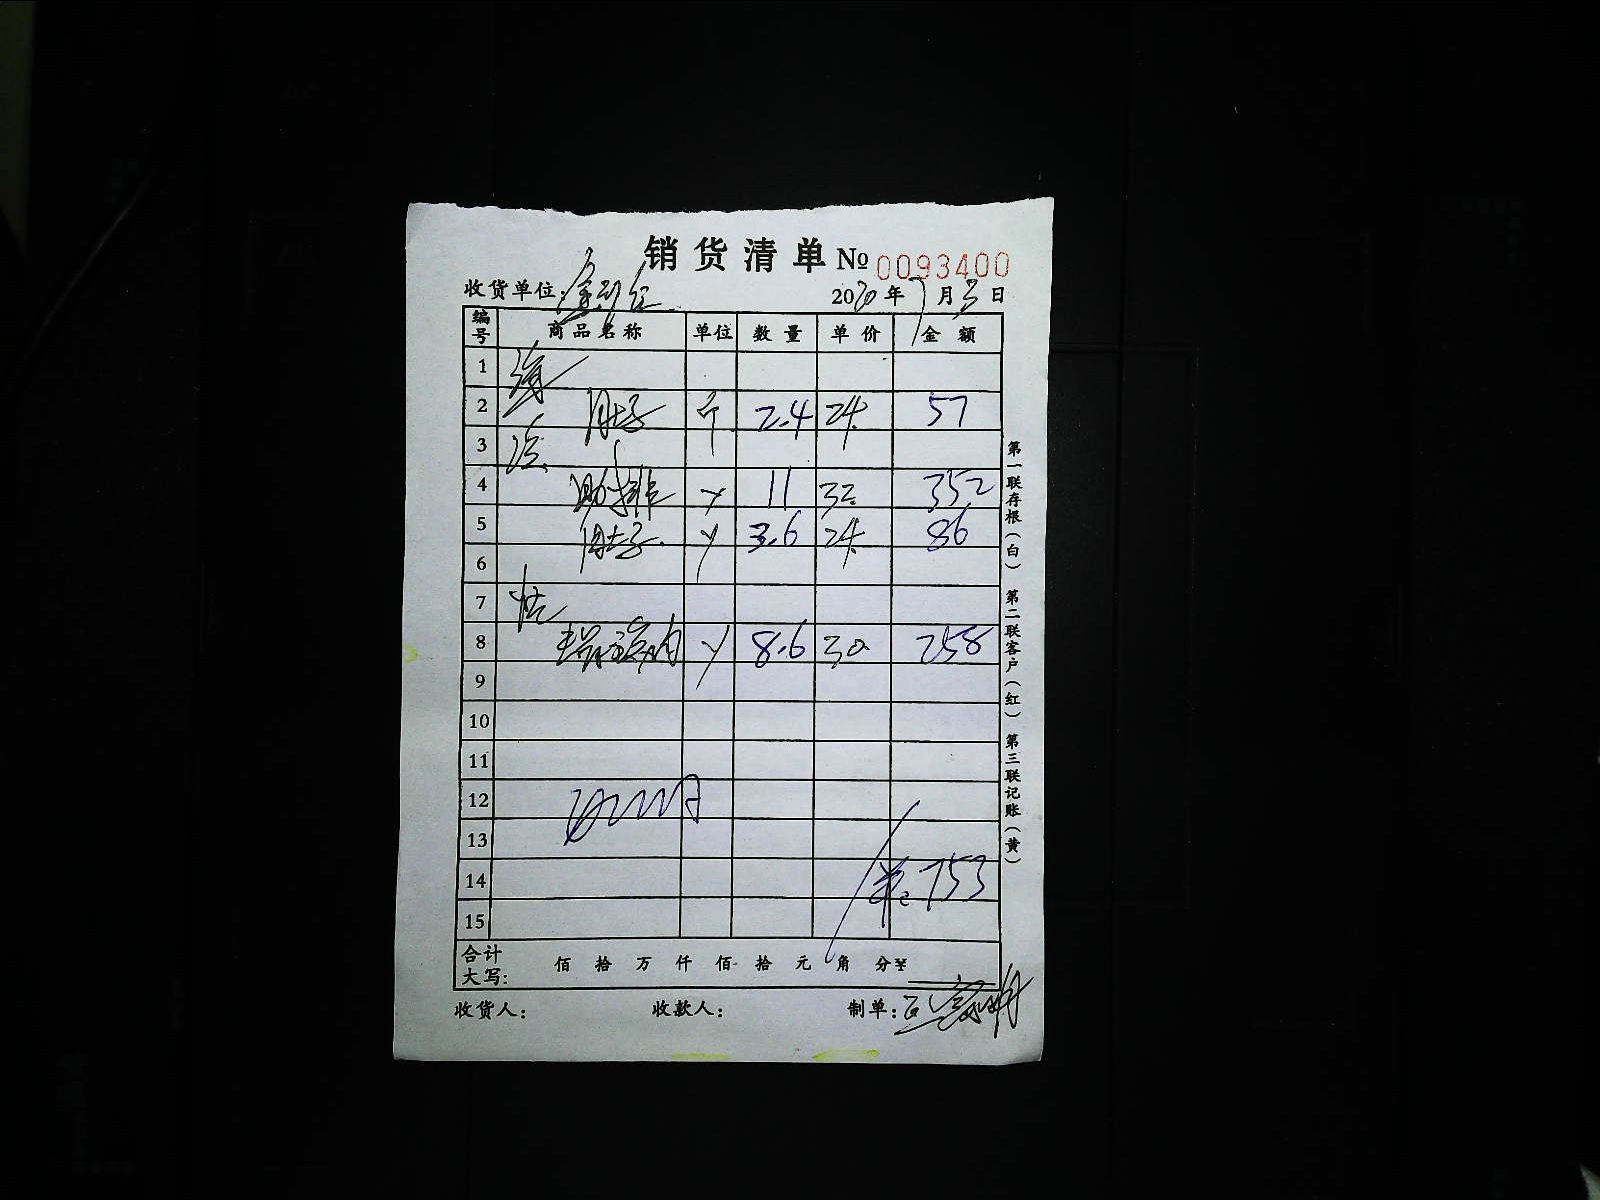 销货清单 № 0093400
收货单位: 2020年7月3日
编号 商品名称 单位 数量 单价 金额
1
2 肚子 斤 2.4 24 57
3
4 肋排 11 32 352
5 肚子 3.6 24 86
6
7
8 肉 8.6 30 258
9
10
11
12
13
14 753
15
合计大写: 佰 拾 万 仟 佰 拾 元 角 分 ¥
收货人: 收款人: 制单:
第一联存根(白) 第二联客户(红) 第三联记账(黄)